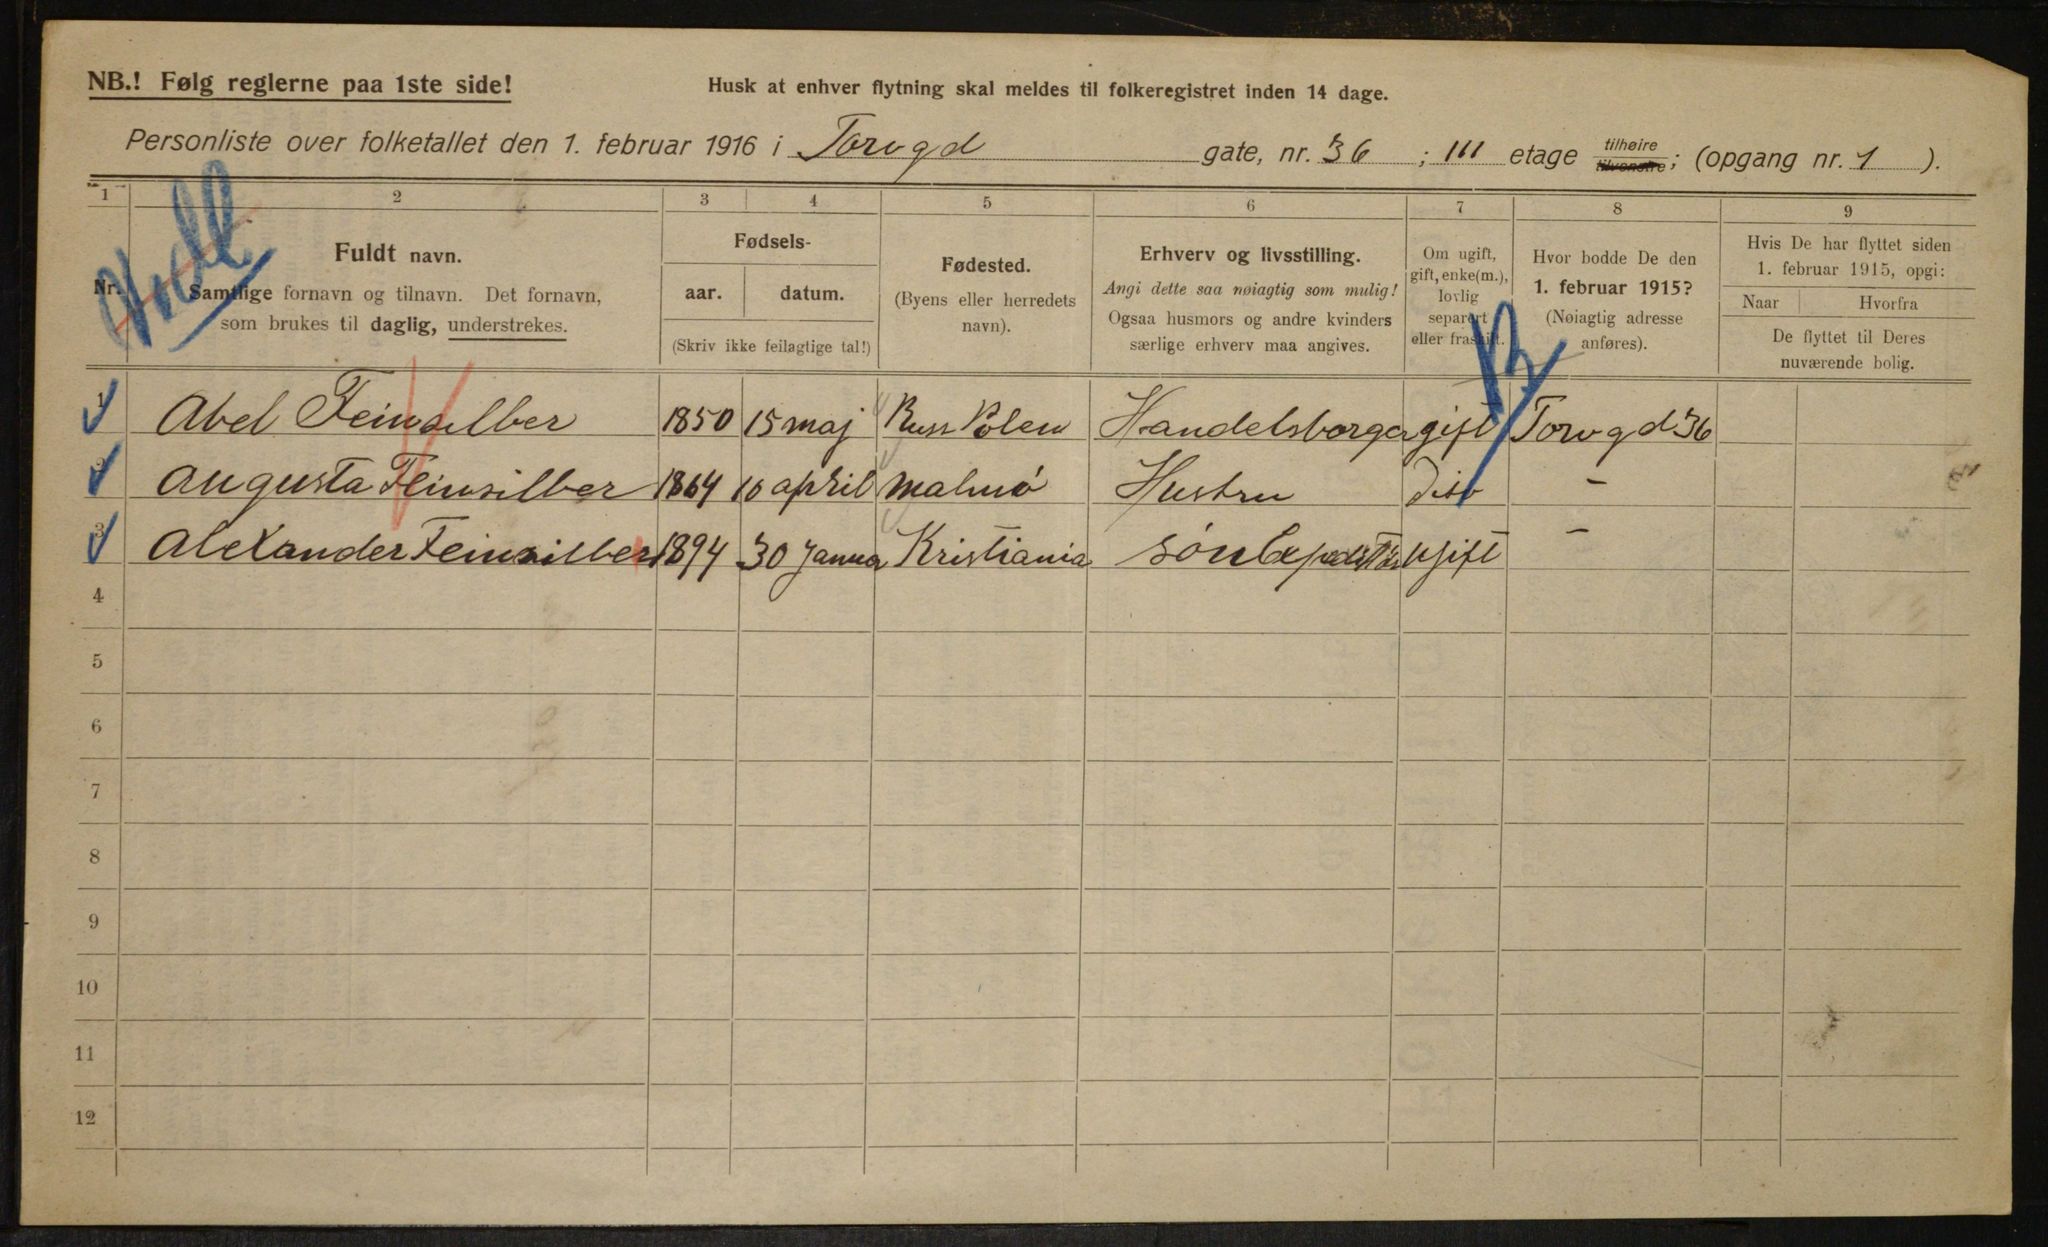 NB.! Følg reglerne paa 1ste side!
Husk at enhver flytning skal meldes til folkeregistret inden 14 dage.
Personliste over folketallet den 1. februar 1916 i Torvgd gate, nr. 36 ; III etage tilhøire tilvenstre; (opgang nr. 1 ).
1 2 3 4 5 6 7 8 9
Nr.
Fuldt navn.
Samtlige fornavn og tilnavn. Det fornavn,
som brukes til daglig, understrekes.
Fødsels-
aar. datum.
(Skriv ikke feilagtige tal!)
Fødested.
(Byens eller herredets
navn).
Erhverv og livsstilling.
Angi dette saa nøiagtig som mulig!
Ogsaa husmors og andre kvinders
særlige erhverv maa angives.
Om ugift,
gift, enke(m.),
lovlig
separert
eller fraskilt.
Hvor bodde De den
1. februar 1915?
(Nøiagtig adresse
anføres).
Hvis De har flyttet siden
1. februar 1915, opgi:
Naar Hvorfra
De flyttet til Deres
nuværende bolig.
1 Abel Feinsilber 1850 15 maj Russ Polen Handelsborger gift Torvgd 36
2 Augusta Feinsilber 1864 10 april Malmö Hustru Dito –
3 Alexander Feinsilber 1894 30 Januar Kristiania Sön Expeditör Ugift –
4
5
6
7
8
9
10
11
12